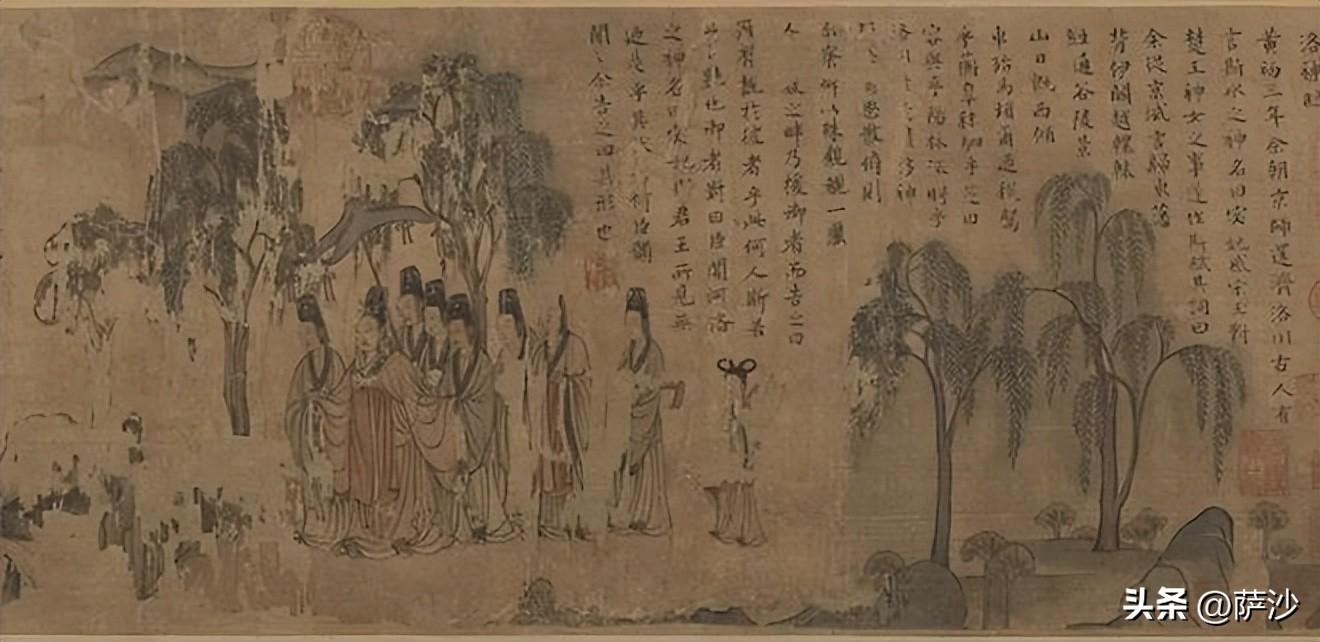 洛神賦
黃初三年余朝京師還濟洛川古人有
言斯水之神名曰宓妃感宋玉對
楚王神女之事遂作斯賦其詞曰
余從京域言歸東藩
背伊闕越轘轅
經通谷陵景
山日既西傾
車殆馬煩爾迺税駕
乎蘅皋秣駟乎芝田
容與乎陽林流眄乎
洛川於是移神
思散俯則
未察仰以殊觀覩一麗
人之畔乃援御者而告之曰
爾有覿於彼者乎此何人斯若
此之艷也御者對曰臣聞河洛
之神名曰宓妃則君王所見無
迺是乎其狀何臣願
聞之余告之曰其形也
头条 @萨沙